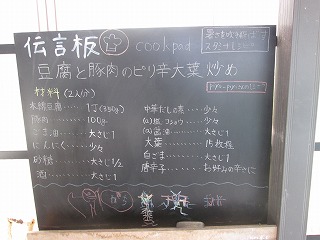 伝言板 cookpad
豆腐と豚肉のピリ辛大葉炒め
材料(2人分)
木綿豆腐……1丁(350g)
豚肉……100g
ごま油……大さじ1
にんにく……少々
砂糖……大さじ1/2
酒……大さじ1
中華だしの素……少々
(a)塩コショウ……少々
(a)醤油……大さじ1
大葉……15枚程
白ごま……大さじ1
唐辛子……お好みの辛さに